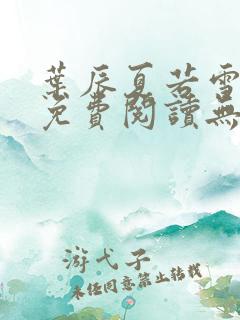 葉辰夏若雪
免費閱讀無
游弋子
未經同意禁止轉載